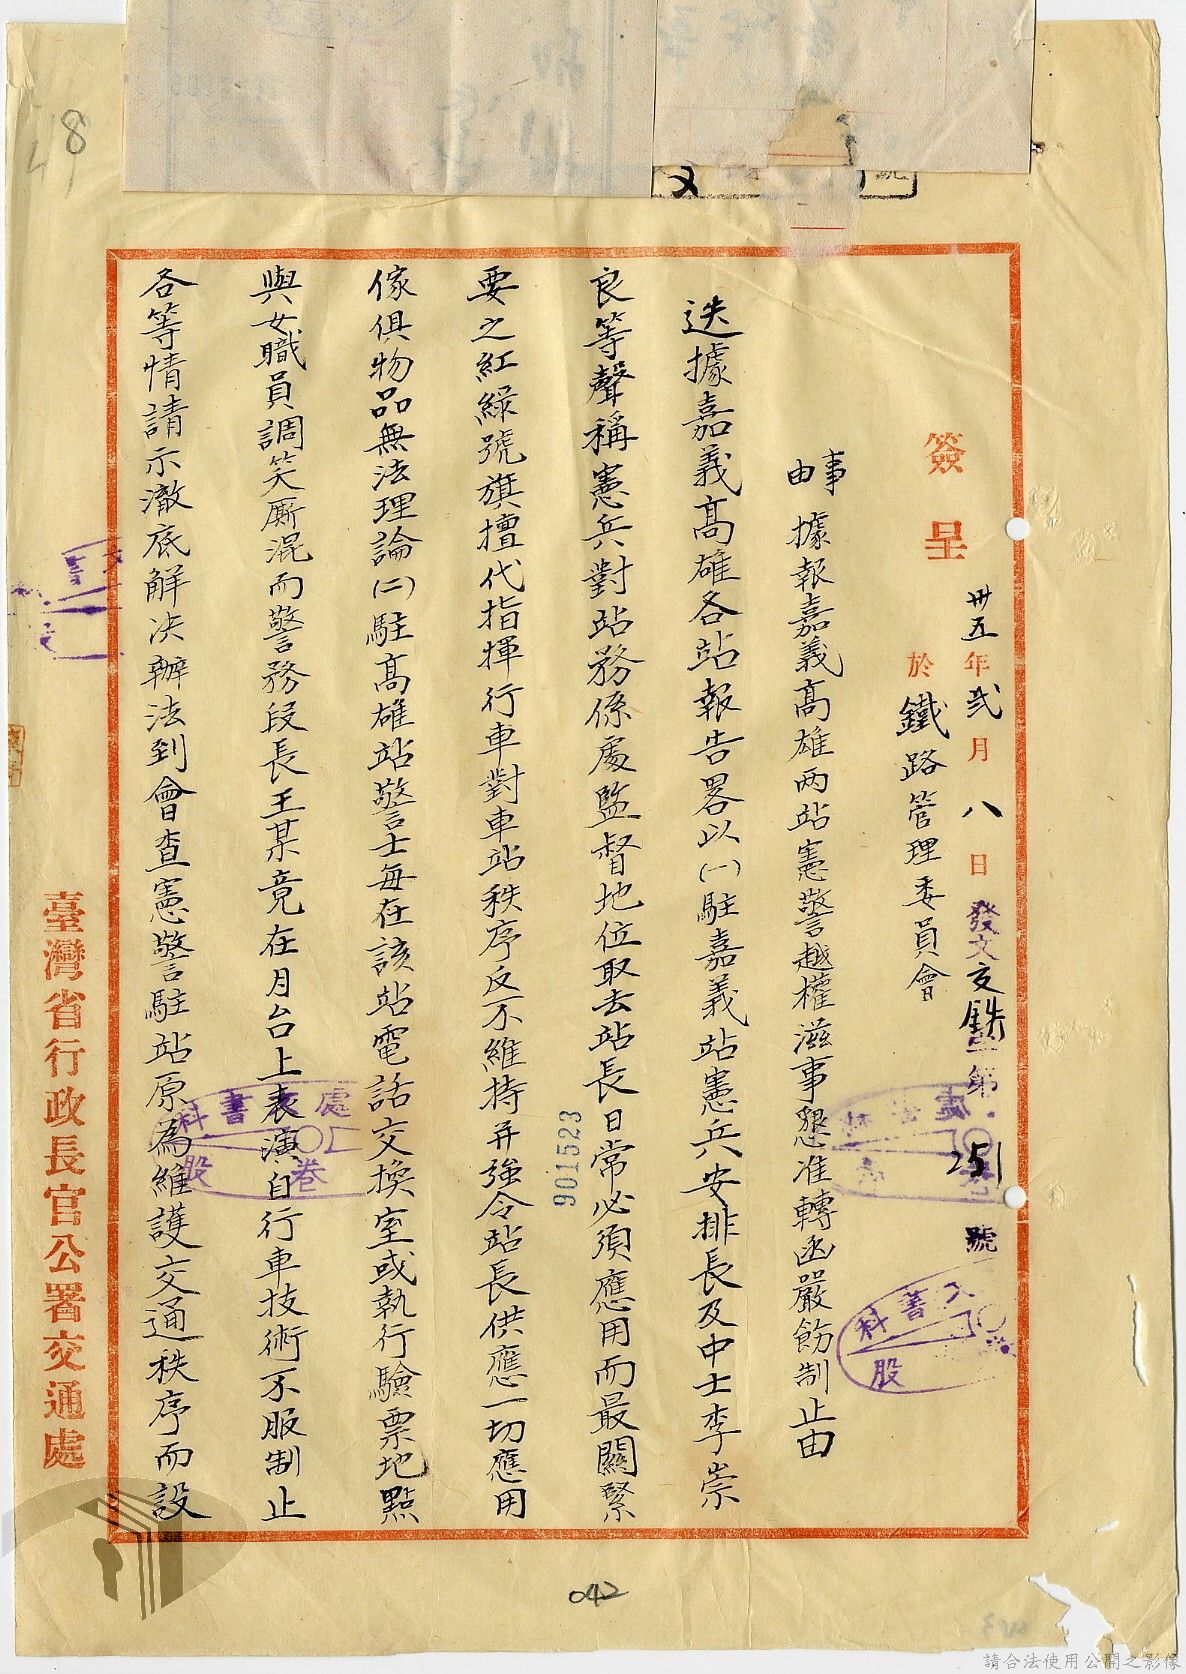 簽呈
卅五年弍月八日發文交鐵第251號
於鐵路管理委員會
事由 據報嘉義高雄兩站憲警越權滋事懇准轉函嚴飭制止由
迭據嘉義高雄各站報告畧以(一)駐嘉義站憲兵安排長及中士李崇
良等聲稱憲兵對站務係處監督地位取去站長日常必須應用而最關緊
要之紅綠號旗擅代指揮行車對車站秩序反不維持并強令站長供應一切應用
傢俱物品無法理論(二)駐高雄站警士每在該站電話交換室或執行驗票地點
與女職員調笑厮混而警務段長王某竟在月台上表演自行車技術不服制止
各等情請示澈底解決辦法到會查憲警駐站原為維護交通秩序而設
臺灣省行政長官公署交通處
901523
042
48
號
處書科
股卷
書科
股
請合法使用公開之影像